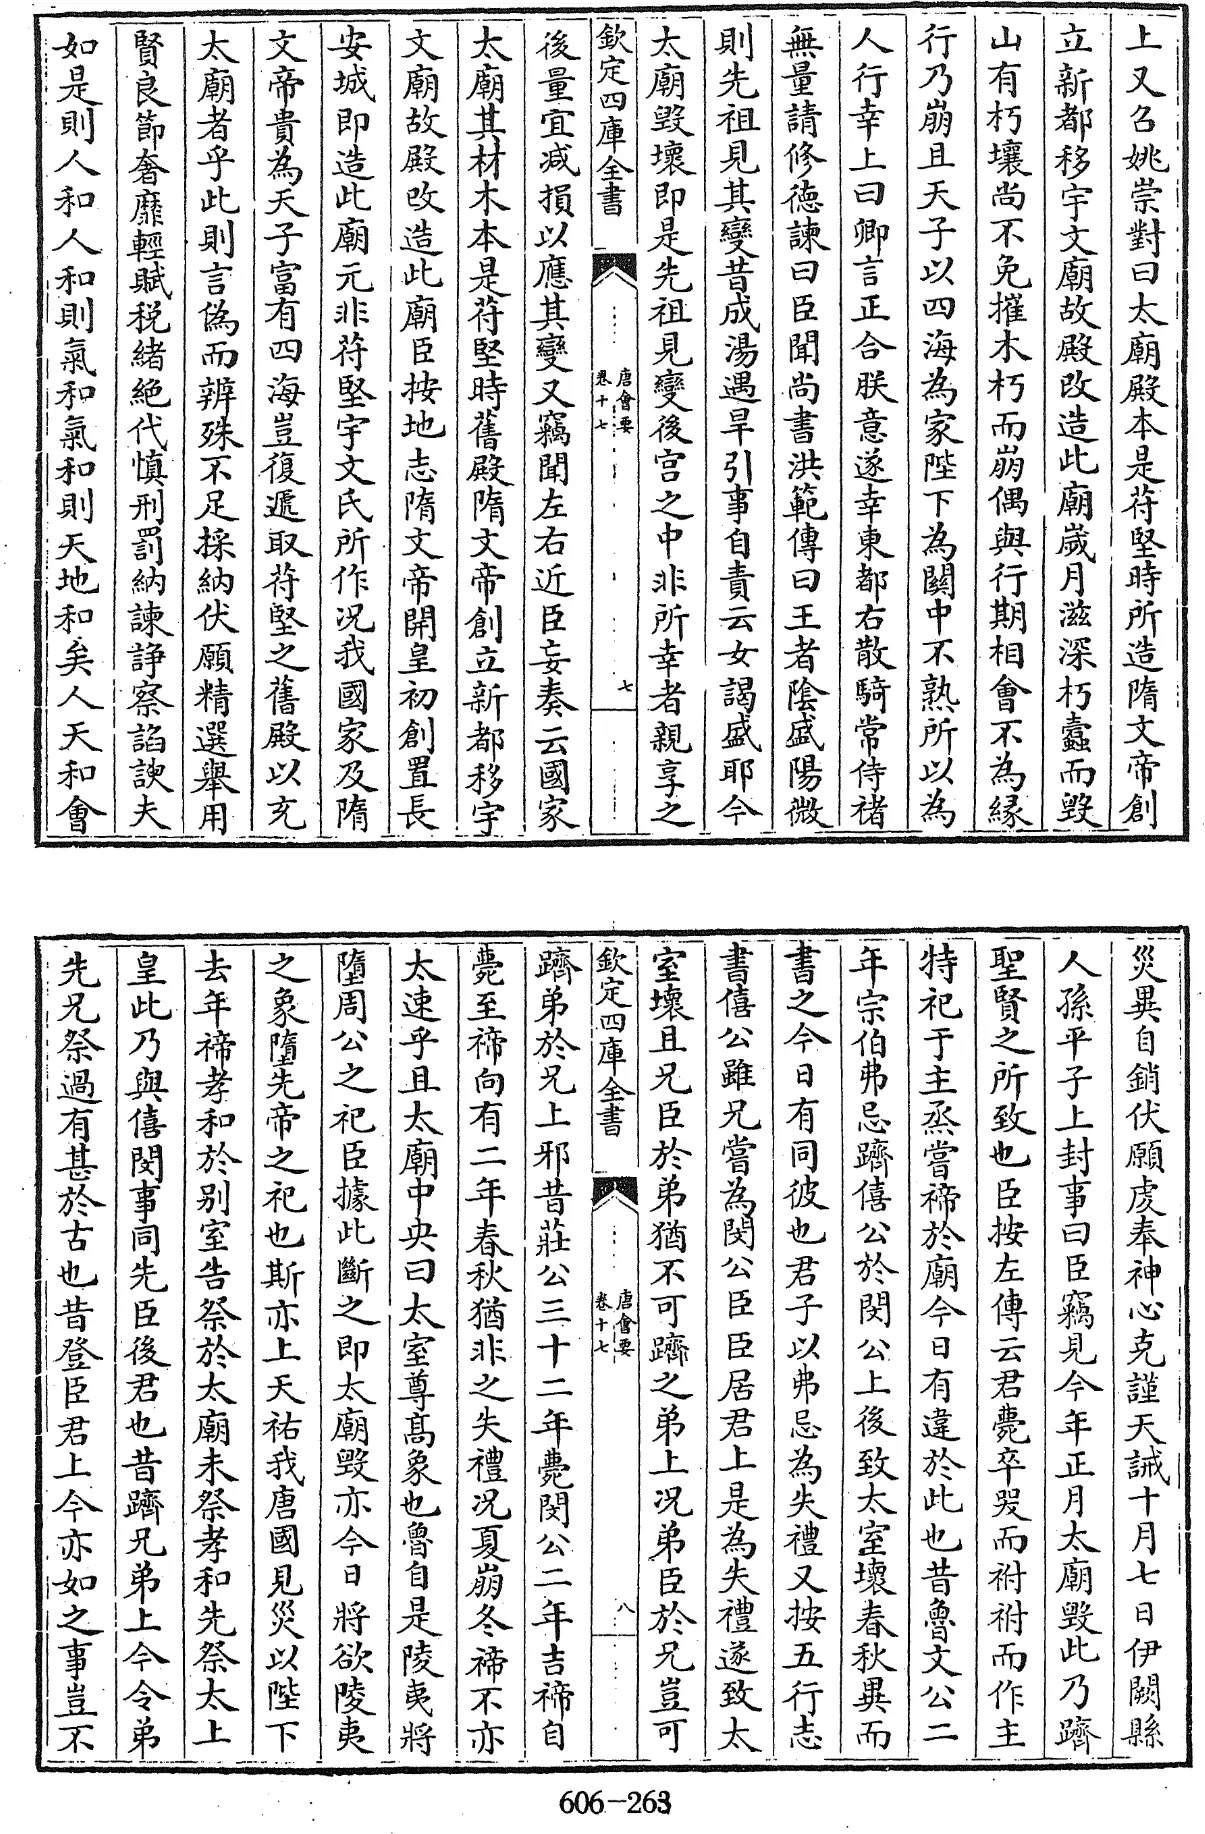 上又召姚崇對曰太廟殿本是苻堅時所造隋文帝創
立新都移宇文廟故殿改造此廟歲月滋深朽蠹而毀
山有朽壤尚不免摧木朽而崩偶與行期相會不為緣
行乃崩且天子以四海為家陛下為關中不熟所以為
人行幸上曰卿言正合朕意遂幸東都右散騎常侍禇
無量請修德諫曰臣聞尚書洪範傳曰王者陰盛陽微
則先祖見其變昔成湯遇旱引事自責云女謁盛耶今
太廟毀壞即是先祖見變後宫之中非所幸者親享之
欽定四庫全書
唐會要
卷十七
七
後量宜减損以應其變又竊聞左右近臣妄奏云國家
太廟其材木本是苻堅時舊殿隋文帝創立新都移宇
文廟故殿改造此廟臣按地志隋文帝開皇初創置長
安城即造此廟元非苻堅宇文氏所作况我國家及隋
文帝貴為天子富有四海豈復遞取苻堅之舊殿以充
太廟者乎此則言偽而辨殊不足採納伏願精選舉用
賢良節奢靡輕賦税緒絶代慎刑罰納諫諍察諂諛夫
如是則人和人和則氣和氣和則天地和矣人天和會
災異自銷伏願虔奉神心克謹天誡十月七日伊闕縣
人孫平子上封事曰臣竊見今年正月太廟毀此乃躋
聖賢之所致也臣按左傳云君薨卒哭而祔祔而作主
特祀于主烝嘗禘於廟今日有違於此也昔魯文公二
年宗伯弗忌躋僖公於閔公上後致太室壞春秋異而
書之今日有同彼也君子以弗忌為失禮又按五行志
書僖公雖兄嘗為閔公臣臣居君上是為失禮遂致太
室壞且兄臣於弟猶不可躋之弟上况弟臣於兄豈可
欽定四庫全書
唐會要
卷十七
八
躋弟於兄上邪昔莊公三十二年薨閔公二年吉禘自
薨至禘向有二年春秋猶非之失禮况夏崩冬禘不亦
太速乎且太廟中央曰太室尊髙象也魯自是陵夷將
墮周公之祀臣據此斷之即太廟毀亦今日將欲陵夷
之象墮先帝之祀也斯亦上天祐我唐國見災以陛下
去年禘孝和於别室告祭於太廟未祭孝和先祭太上
皇此乃與僖閔事同先臣後君也昔躋兄弟上今令弟
先兄祭過有甚於古也昔登臣君上今亦如之事豈不
606-263